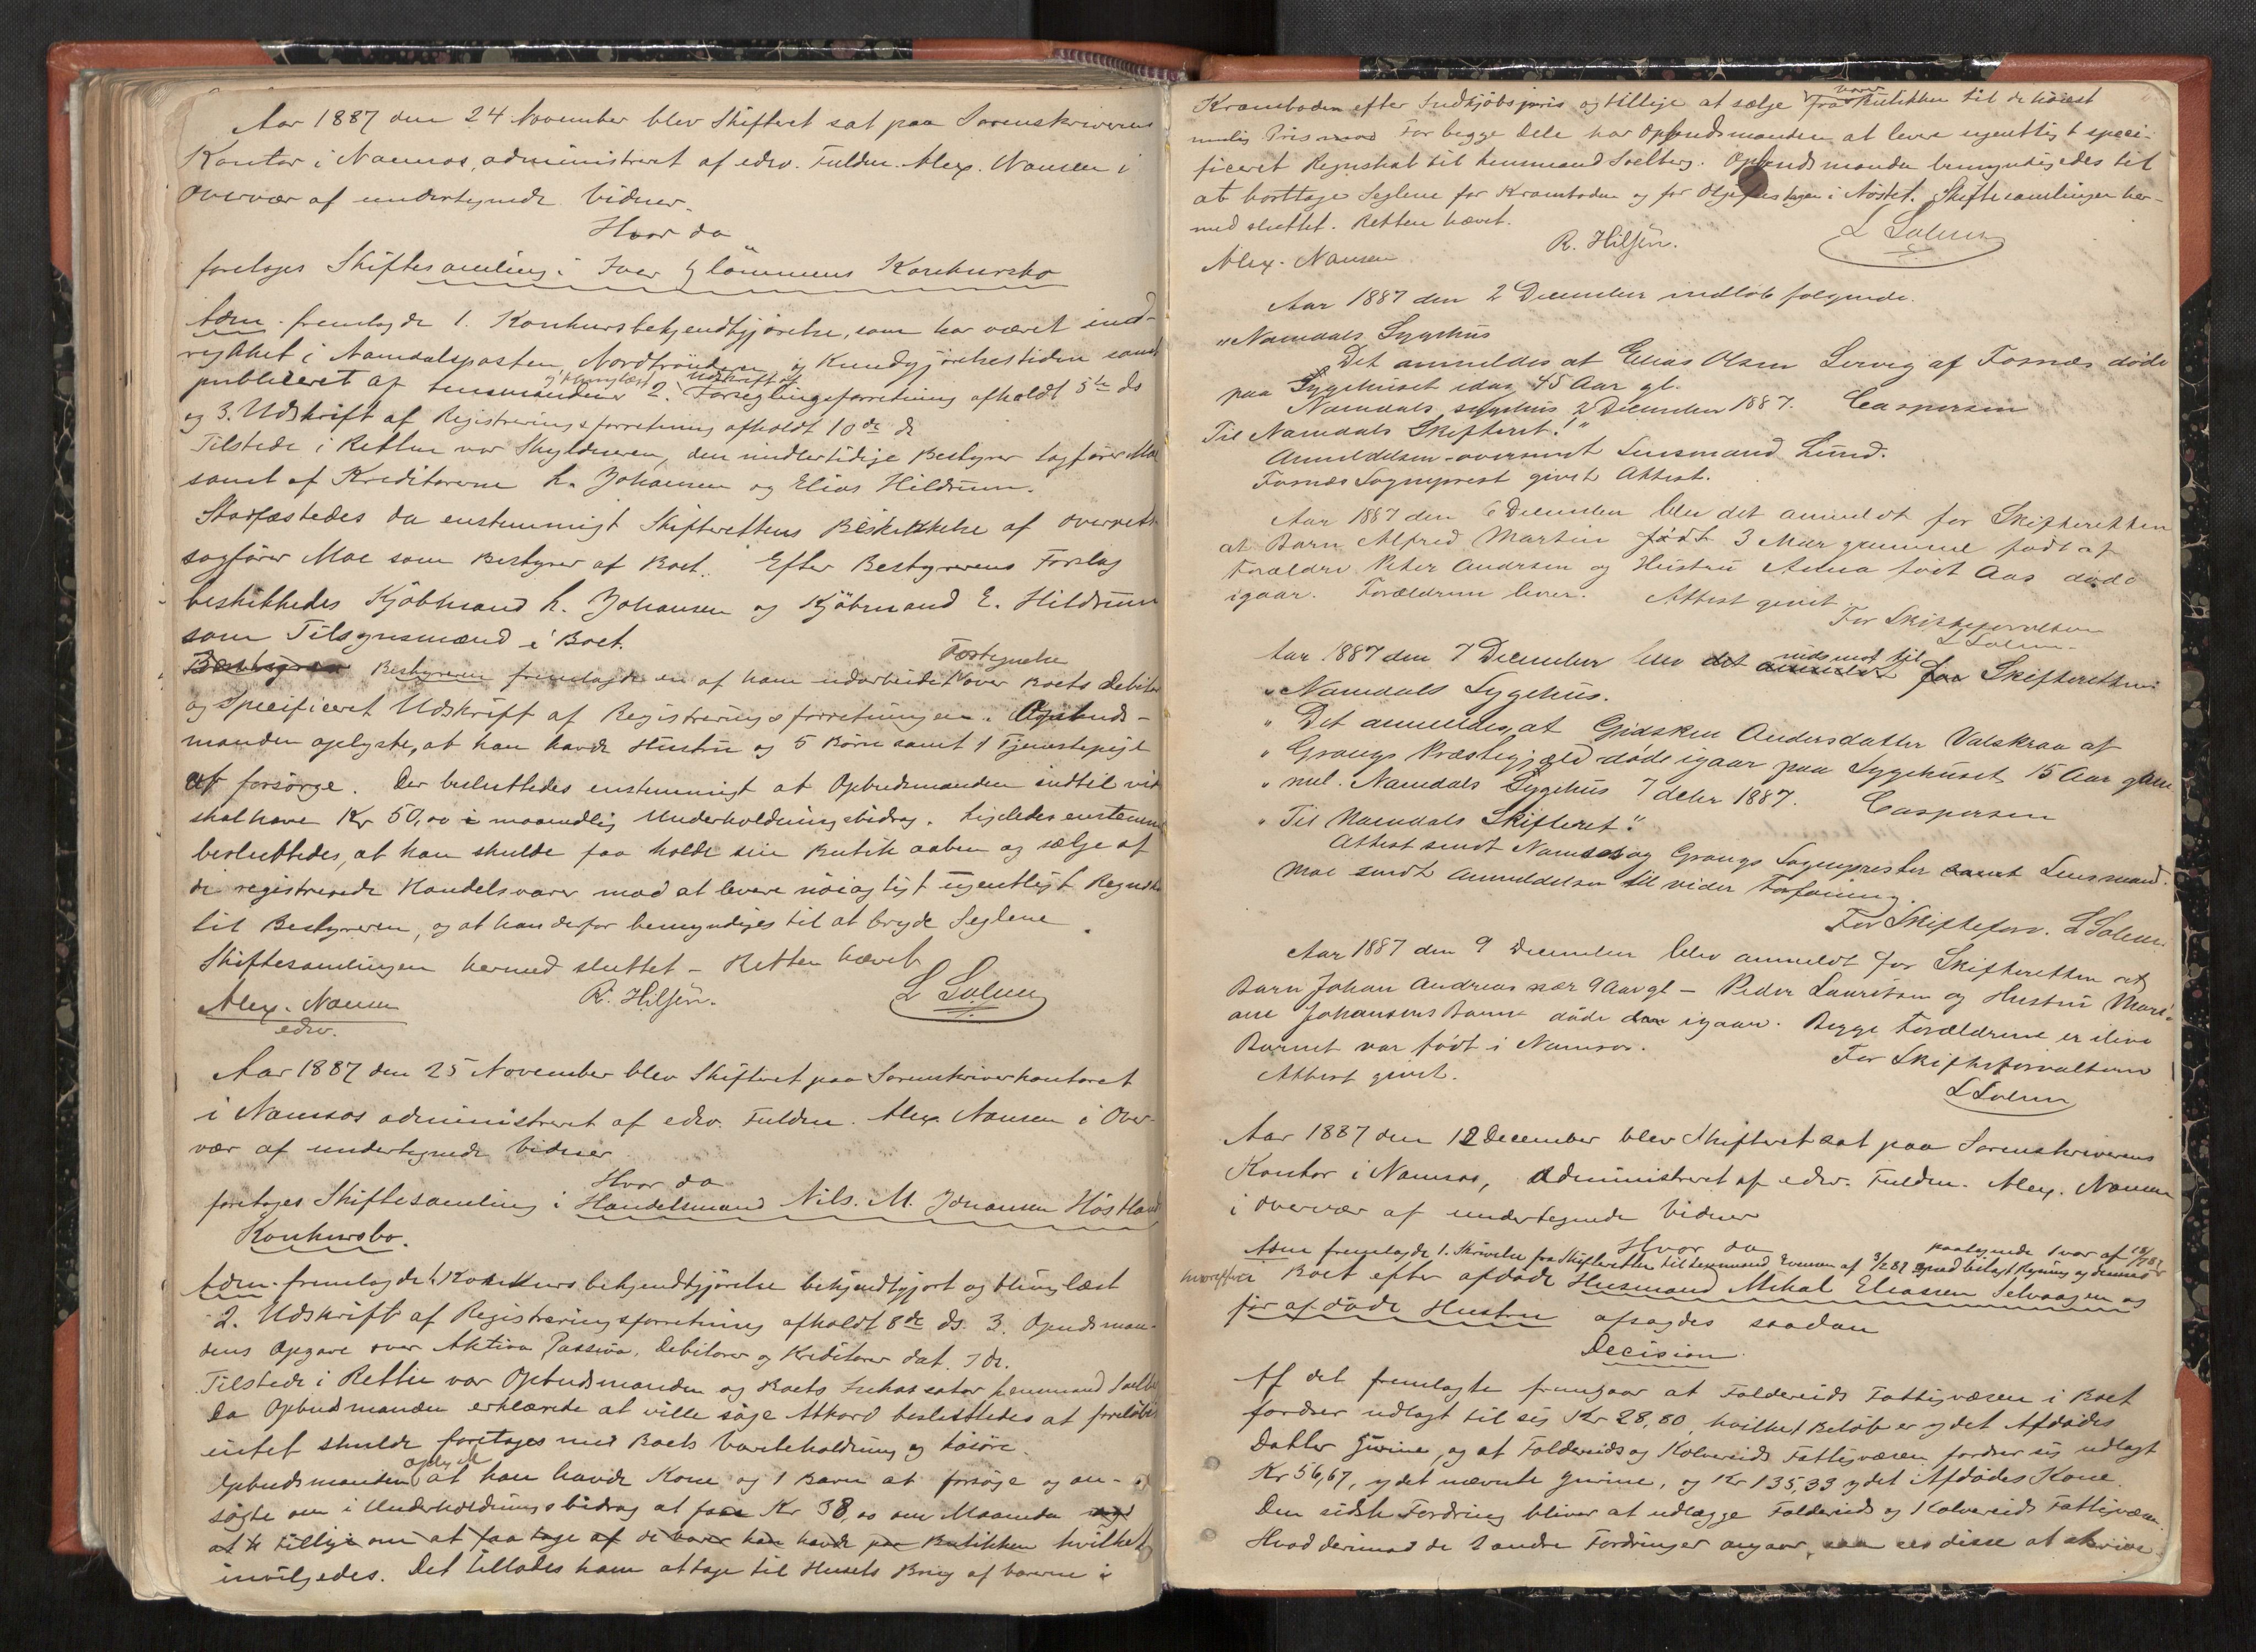 Aar 1887 den 24 November blev Skifteret sat paa Sorenskriverens
Kontor i Namsos, administreret af edsv. Fuldm. Alex. Nansen i
Overvær af undertegnede Vidner.
Hvor da
foretoges Skiftesamling i Iver Glømmens Konkursbo
Adm. fremlagde 1. Konkursbekjendtgjørelse, som har været ind-
rykket i Namdalsposten, Nordtrønderen og Kundgjørelsestidende samt
publiceret af Lensmændene og thinglæst 2. Udskrift af Forseglingsforretning afholdt 5te ds
og 3. Udskrift af Registreringsforretning afholdt 10de ds
Tilstede i Retten var Skyldneren, den midlertidige Bestyrer Sagfører Moe
samt af Kreditorerne L. Johansen og Elias Hildrum.
Stadfæstedes da enstemmigt Skifterettens Beskikkelse af Overrets-
sagfører Moe som Bestyrer af Boet. Efter Bestyrerens Forslag
beskikkedes Kjøbmand L. Johansen og Kjøbmand E. Hildrum
som Tilsynsmænd i Boet.
Bestyreren Bestyreren fremlagde en af ham udarbeidet Fortegnelse over Boets Debitorer
og specificeret Udskrift af Registreringsforretningen. Opbuds-
manden oplyste, at han havde Hustru og 5 Børn samt 1 Tjenestepige
at forsørge. Der besluttedes enstemmigt at Opbudsmanden indtil vid
skal have Kr 50,00 i maanedlig Underholdningsbidrag. Ligeledes enstemmig
besluttedes, at han skulde faa holde sin Butik aaben og sælge af
de registrerede Handelsvarer mod at levere nøiagtigt ugentligt Regnskab
til Bestyreren, og at han derfor bemyndiges til at bryde Seglene.
Skiftesamlingen hermed sluttet – Retten hævet
Alex. Nansen R. Hilsén. L Solem
edsv.
Aar 1887 den 25 November blev Skifteret paa Sorenskriverkontoret
i Namsos administreret af edsv. Fuldm. Alex. Nansen i Over-
vær af undertegnede Vidner
Hvor da
foretoges Skiftesamling i Handelsmand Nils. M. Johansen Høstland
Konkursbo.
Adm. fremlagde 1. Konkursbekjendtgjørelse bekjendtgjort og thinglæst
2. Udskrift af Registreringsforretning afholdt 8de ds. 3. Opbudsman-
dens Opgave over Aktiva Passiva, Debitorer og Kreditorer dat. 7 ds.
Tilstede i Retten var Opbudsmanden og Boets Inkassator Lensmand Soelberg
Da Opbudsmanden erklærede at ville søge Akkord besluttedes at foreløbig
intet skulde foretages med Boets Varebeholdning og Løsøre.
Opbudsmanden oplyste at han havde Kone og 1 Barn at forsørge og an-
søgte om i Underholdningsbidrag at faa Kr 38,00 om Maaneden
at tillige om at faa tage af de Varer han havde paa Butikken hvilket
indvilgedes. Det tillodes ham at tage til Husets Brug af Varerne i
Kramboden efter Indkjøbspris og tillige at sælge varer fra Butikken til de høiest
mulig Pris For begge Dele har Opbudsmanden at levere ugentligt speci-
ficeret Regnskab til Lensmand Soelberg. Opbudsmanden bemyndigedes til
at borttage Seglene for Kramboden og for i Nøstet. Skiftesamlingen her-
med sluttet. Retten hævet.
Alex. Nansen R. Hilsén. L Solem
Aar 1887 den 2 December indløb følgende.
"Namdals Sygehus
Det anmeldes at Elias Olsen Lervig af Fosnæs døde
paa Sygehuset idag 45 Aar gl.
Namdals sygehus 2 December 1887. Caspersen
Til Namdals Skifteret!"
Anmeldelsen oversendt Lensmand Lund.
Fosnæs Sogneprest givet Attest.
Aar 1887 den 6 December blev det anmeldt for Skifteretten
at Barn Alfred Martin født 3 Mdr gammel født af
Forældre Peter Andersen og Hustru Anna født Aas døde
igaar. Forældrene lever. Attest givet.
For Skifteforvalteren
L Solem.
Aar 1887 den 7 December blev det anmeldt indsendt til for Skifteretten:
"Namdals Sygehus.
" Det anmeldes, at Gidsken Andersdatter Valskraa af
" Grongs Præstegjæld døde igaar paa Sygehuset, 15 Aar gam
" mel. Namdals Sygehus 7 decbr 1887. Caspersen
" Til Namdals Skifteret."
Attest sendt Namsos og Grongs Sogneprester samt Lensmand
Moe sendt Anmeldelsen til videre Forføining.
For Skifteforv. L Solem.
Aar 1887 den 9 December blev anmeldt for Skifteretten at
Barn Johan Andreas nær 9 Aar gl – Peder Lauritsen og Hustru Mari-
ane Johansens Barn døde den igaar. Begge Forældrene er ilive
Barnet var født i Namsos.
Attest givet. For Skifteforvalteren
L Solem
Aar 1887 den 12 December blev Skifteret sat paa Sorenskriverens
Kontor i Namsos, administreret af edsv. Fuldm. Alex. Nansen
i Overvær af undertegnede Vidner
Hvor da
Adm fremlagde 1. Skrivelse fra Skifteretten til Lensmand Evensen af 3/12 87 med bilagt Regning og dennes paategnede Svar af
hvorefter i Boet efter afdøde Husmand Mikal Eliassen Selvaagen og
før afdøde Hustru afsagdes saadan
Decision.
Af det fremlagte fremgaar at Foldereids Fattigvæsen i Boet
fordrer udlagt til sig Kr 28,80, hvilket Beløb er ydet Afdødes
Datter Jurine, og at Foldereids og Kolvereids Fattigvæsen fordrer sig udlagt
Kr 56,67, ydet nævnte Jurine, og Kr 135,33 ydet Afdødes Kone.
Den sidste Fordring bliver at udlægge Foldereids og Kolvereids Fattigvæsen.
Hvad derimod de 2 andre Fordringer angaar, disse at